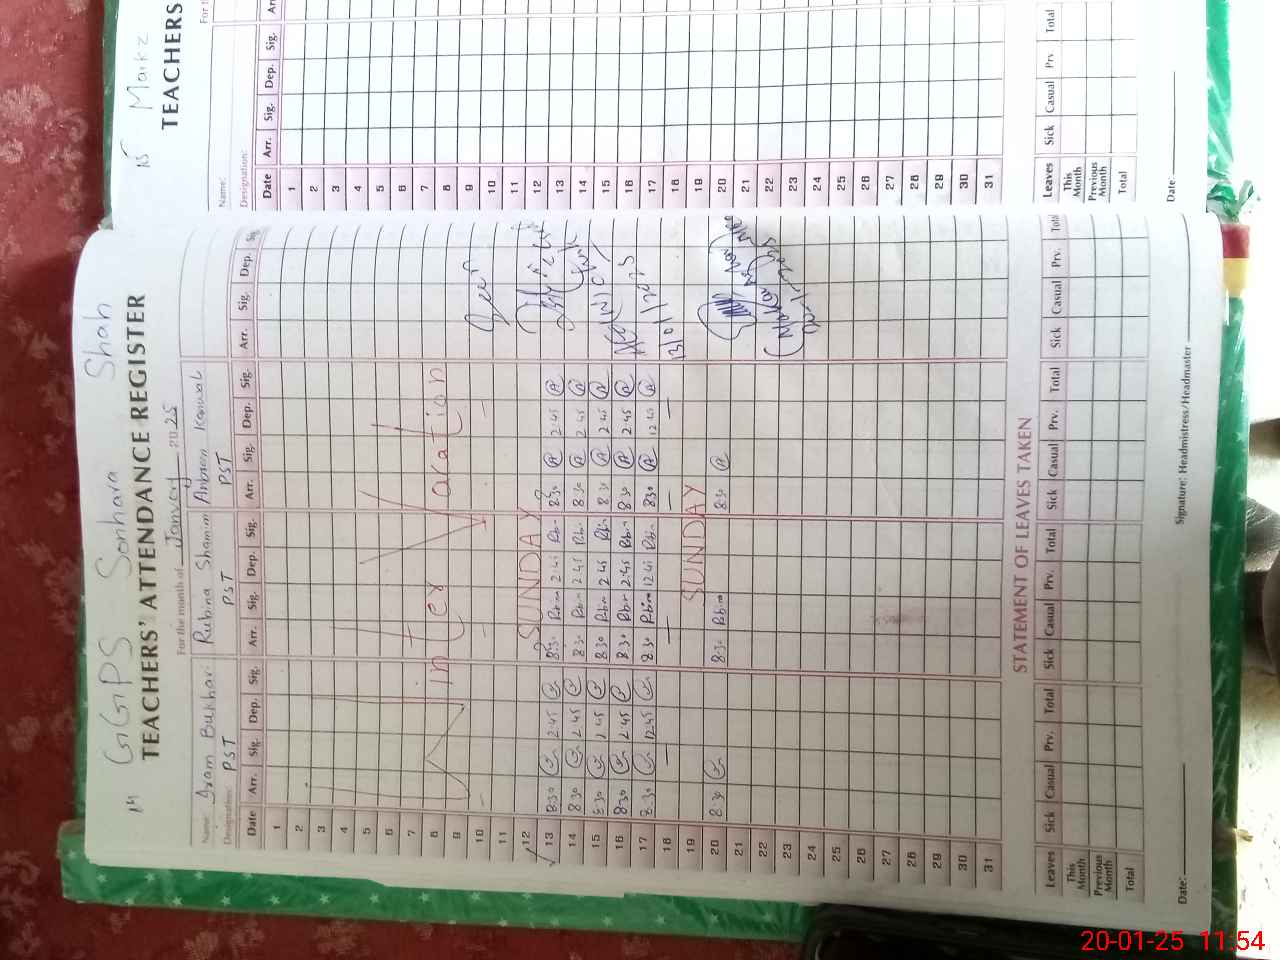 14 GGPS Sonhara Shah
TEACHERS' ATTENDANCE REGISTER
For the month of January 2025
Name: Iram Bukhari Rubina Shamim Anbreen Kanwal
Designation: PST PST PST
Date Arr. Sig. Dep. Sig. Arr. Sig. Dep. Sig. Arr. Sig. Dep. Sig. Arr. Sig. Dep. Sig.
1
2
3
4
5
6
7
8
9
Winter Vacation
10 - - -
11
12 SUNDAY
13 8:30 2:45 8:30 Rbin 2:45 Rbin 8:30 A 2:45 A
14 8:30 2:45 8:30 Rbin 2:45 Rbin 8:30 A 2:45 A
15 8:30 2:45 8:30 Rbin 2:45 Rbin 8:30 A 2:45 A
16 8:30 2:45 8:30 Rbin 2:45 Rbin 8:30 A 2:45 A
17 8:30 12:45 8:30 Rbin 12:45 Rbin 8:30 A 12:45 A
13/01/2025
18 — — —
19 SUNDAY
20 8:30 8:30 Rbin 8:30 A
21
22
23
24
25
26
27
28
29
30
31
STATEMENT OF LEAVES TAKEN
Leaves Sick Casual Prv. Total Sick Casual Prv. Total Sick Casual Prv. Total Sick Casual Prv. Total
This Month
Previous Month
Total
Date: Signature: Headmistress/Headmaster
15 Markz
TEACHERS
For t
Name:
Designation:
Date Arr. Sig. Dep. Sig. Ar
1
2
3
4
5
6
7
8
9
10
11
12
13
14
15
16
17
18
19
20
21
22
23
24
25
26
27
28
29
30
31
Leaves Sick Casual Prv Total
This Month
Previous Month
Total
Date:
20-01-25 11:54